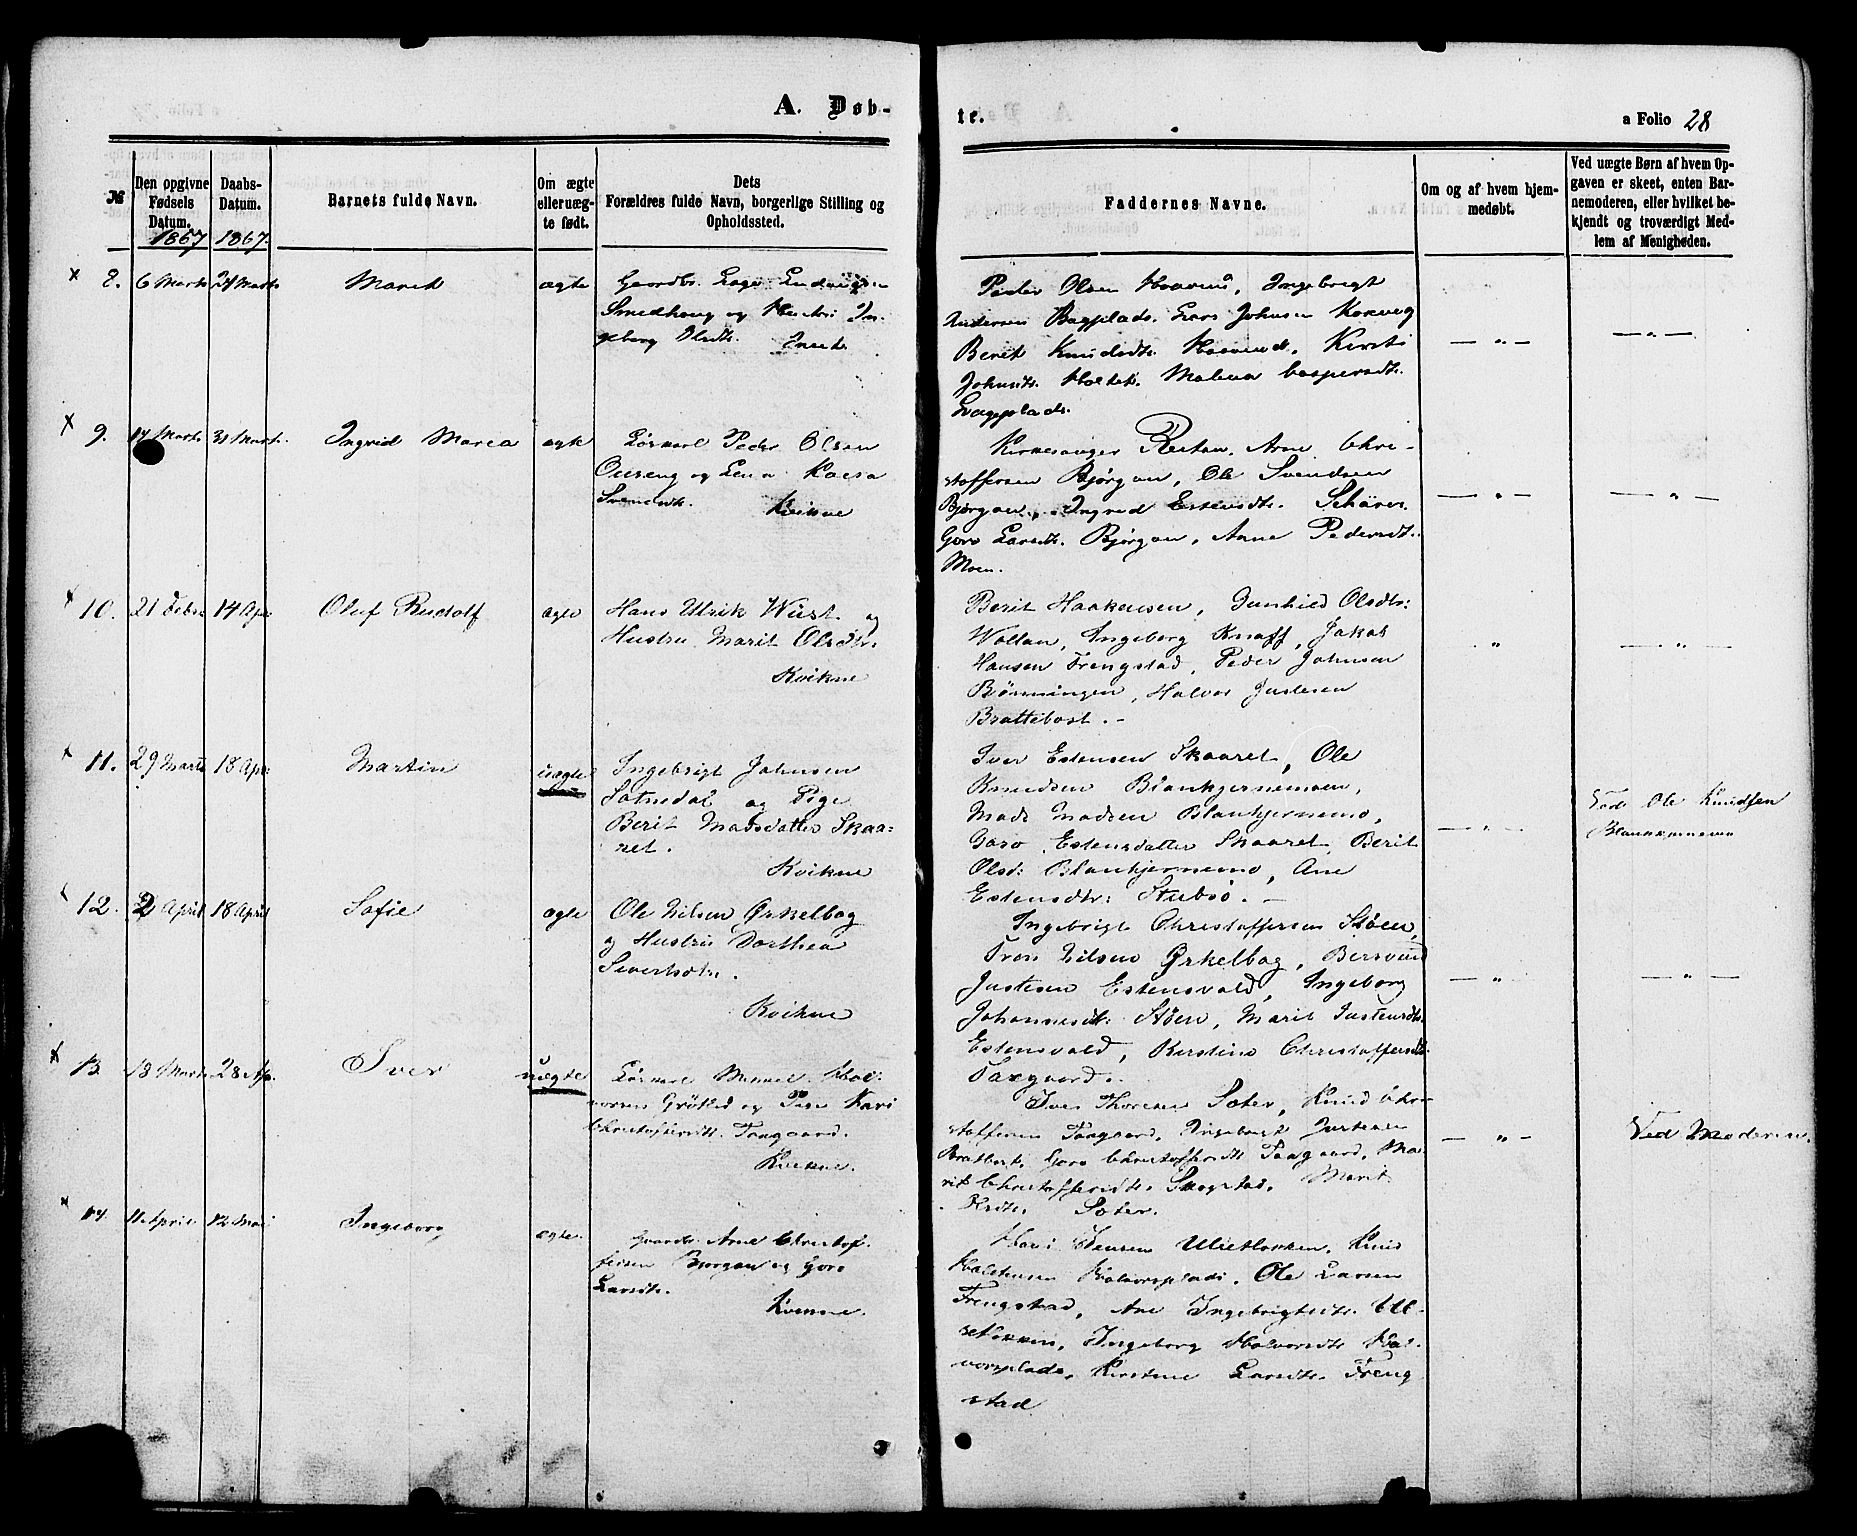 A. Døb-
te.
a Folio 28
№
Den opgivne Fødsels Datum.
1867
Daabs-Datum.
1867.
Barnets fulde Navn.
Om ægte eller uægte født.
Dets Forældres fulde Navn, borgerlige Stilling og Opholdssted.
Faddernes Navne.
Om og af hvem hjemmedøbt.
Ved uægte Børn af hvem Opgaven er skeet, enten Barnemoderen, eller hvilket bekjendt og troværdigt Medlem af Menigheden.
8. 6 Marts 24 Marts Marit ægte
Smedhaug og Hustru In-
geborg Olsdtr. Inset.
Peder Olsen, Ingebrigt
Andersen Bagplads. Lars Johnsen
Berit Knudsdtr. Kirsti
Johnsdtr. Holtet. Malena Caspersdtr.
Bagplads.
9. 17 Marts 31 Marts. Ingrid Maria ægte
Løskarl Peder Olsen
og Lena Kaisa
Svendsdtr. Kvikne
Kirkesanger Restan. Arne Chri-
stoffersen Bjørgan, Ole Svendsen
Bjørgan, Ingrid Estensdtr.
Goro Larsdtr. Bjørgan, Anne Pedersdtr.
Moen.
10. 21 Febr 14 Apr Oluf Rudolf ægte
Hans Ulrik Wüst og
Hustru Marit Olsdtr.
Kvikne
Berit Haakensen, Gunhild Olsdtr:
Wollan, Ingeborg Knoff, Jakob
Hansen Frengstad, Peder Johnsen
Bønningen, Halvor Justesen
Brattebost. -
11. 29 Marts 18 Apr: Martin uægte
Ingebrigt Johnsen
Sotnedal og Pige
Berit Madsdatter Skaa-
ret.
Kvikne
Iver Estensen Skaaret, Ole
Knudsen Blankjernemoen,
Mads Madsen Blankjernmo,
Goro Estensdatter Skaaret, Berit
Olsd: Blankjernmo, Ane
Estensdtr: Stubsø. -
Ved Ole Knudsen
12. 2 April 18 April Sofie ægte
Ole Nilsen Ørkelbog
og Hustru Dorthea
Sivertsdtr.
Kvikne
Ingebrigt Christoffersen Støen,
Tron Nilsen Ørkelbog, Bersvend
Justesen Estensvold, Ingeborg
Johannesdt: Støen, Marit Justensdtr.
Estensvold, Kerstine Christoffersdt.
13. 18 Marts 28 Ap. Iver uægte
Løskarl Hal-
vorsen og Pige Kari
Christoffersdtr. Taagaard.
Kvikne.
Iver Thoresen Soter, Knud Chri-
stoffersen Taagaard, Ingebrigt Justesen
Bratbost, Goro Christoffersdtr Taagaard, Ma-
rit Christoffersdtr. Marit
Soter.
Ved Moderen
14. 11. April. 12 Mai Ingeborg ægte.
Gaardbr. Arne Christof-
fersen Bjørgan og Goro
Larsdtr.
Kvikne.
Jensen Ulletlokken, Knud
Halstensen Halvorsplads, Ole Larsen
Frengstad, Ane Ingebrigtsdtr. Ul-
Ingeborg Halvorsdtr Hal-
vorsplads, Kirstine Larsdtr. Freng
stad